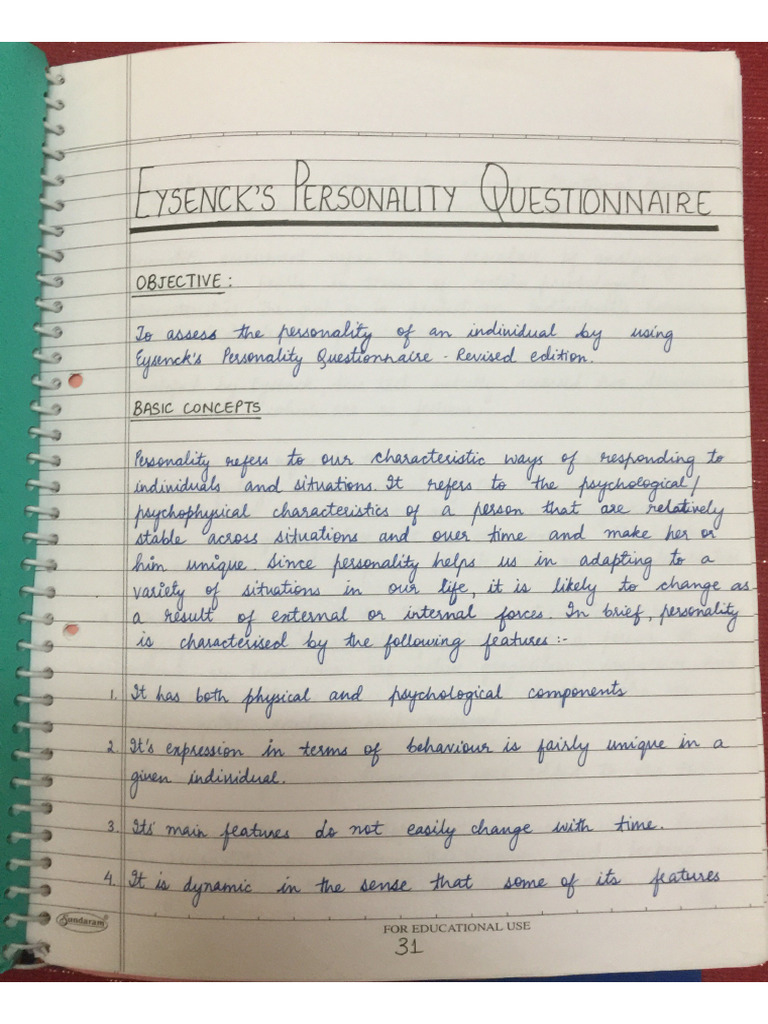 EYSENCK'S PERSONALITY QUESTIONNAIRE
OBJECTIVE :
To assess the personality of an individual by using
Eysenck's Personality Questionnaire - Revised edition.
BASIC CONCEPTS
Personality refers to our characteristic ways of responding to
individuals and situations. It refers to the psychological/
psychophysical characteristics of a person that are relatively
stable across situations and over time and make her or
him unique. Since personality helps us in adapting to a
variety of situations in our life, it is likely to change as
a result of external or internal forces. In brief, personality
is characterised by the following features :-
1. It has both physical and psychological components
2. It's expression in terms of behaviour is fairly unique in a
given individual.
3. Its' main features do not easily change with time.
4. It is dynamic in the sense that some of its features
Sundaram
FOR EDUCATIONAL USE
31